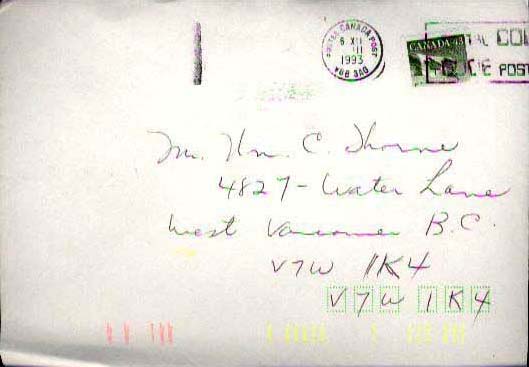 CANADA POST
6 XII
1993
V6B 3A0
CANADA 43
POST
Mr. Wm. C. Thorne
4827 - Water Lane
West Vancouver B.C.
V7W 1K4
V7W 1K4